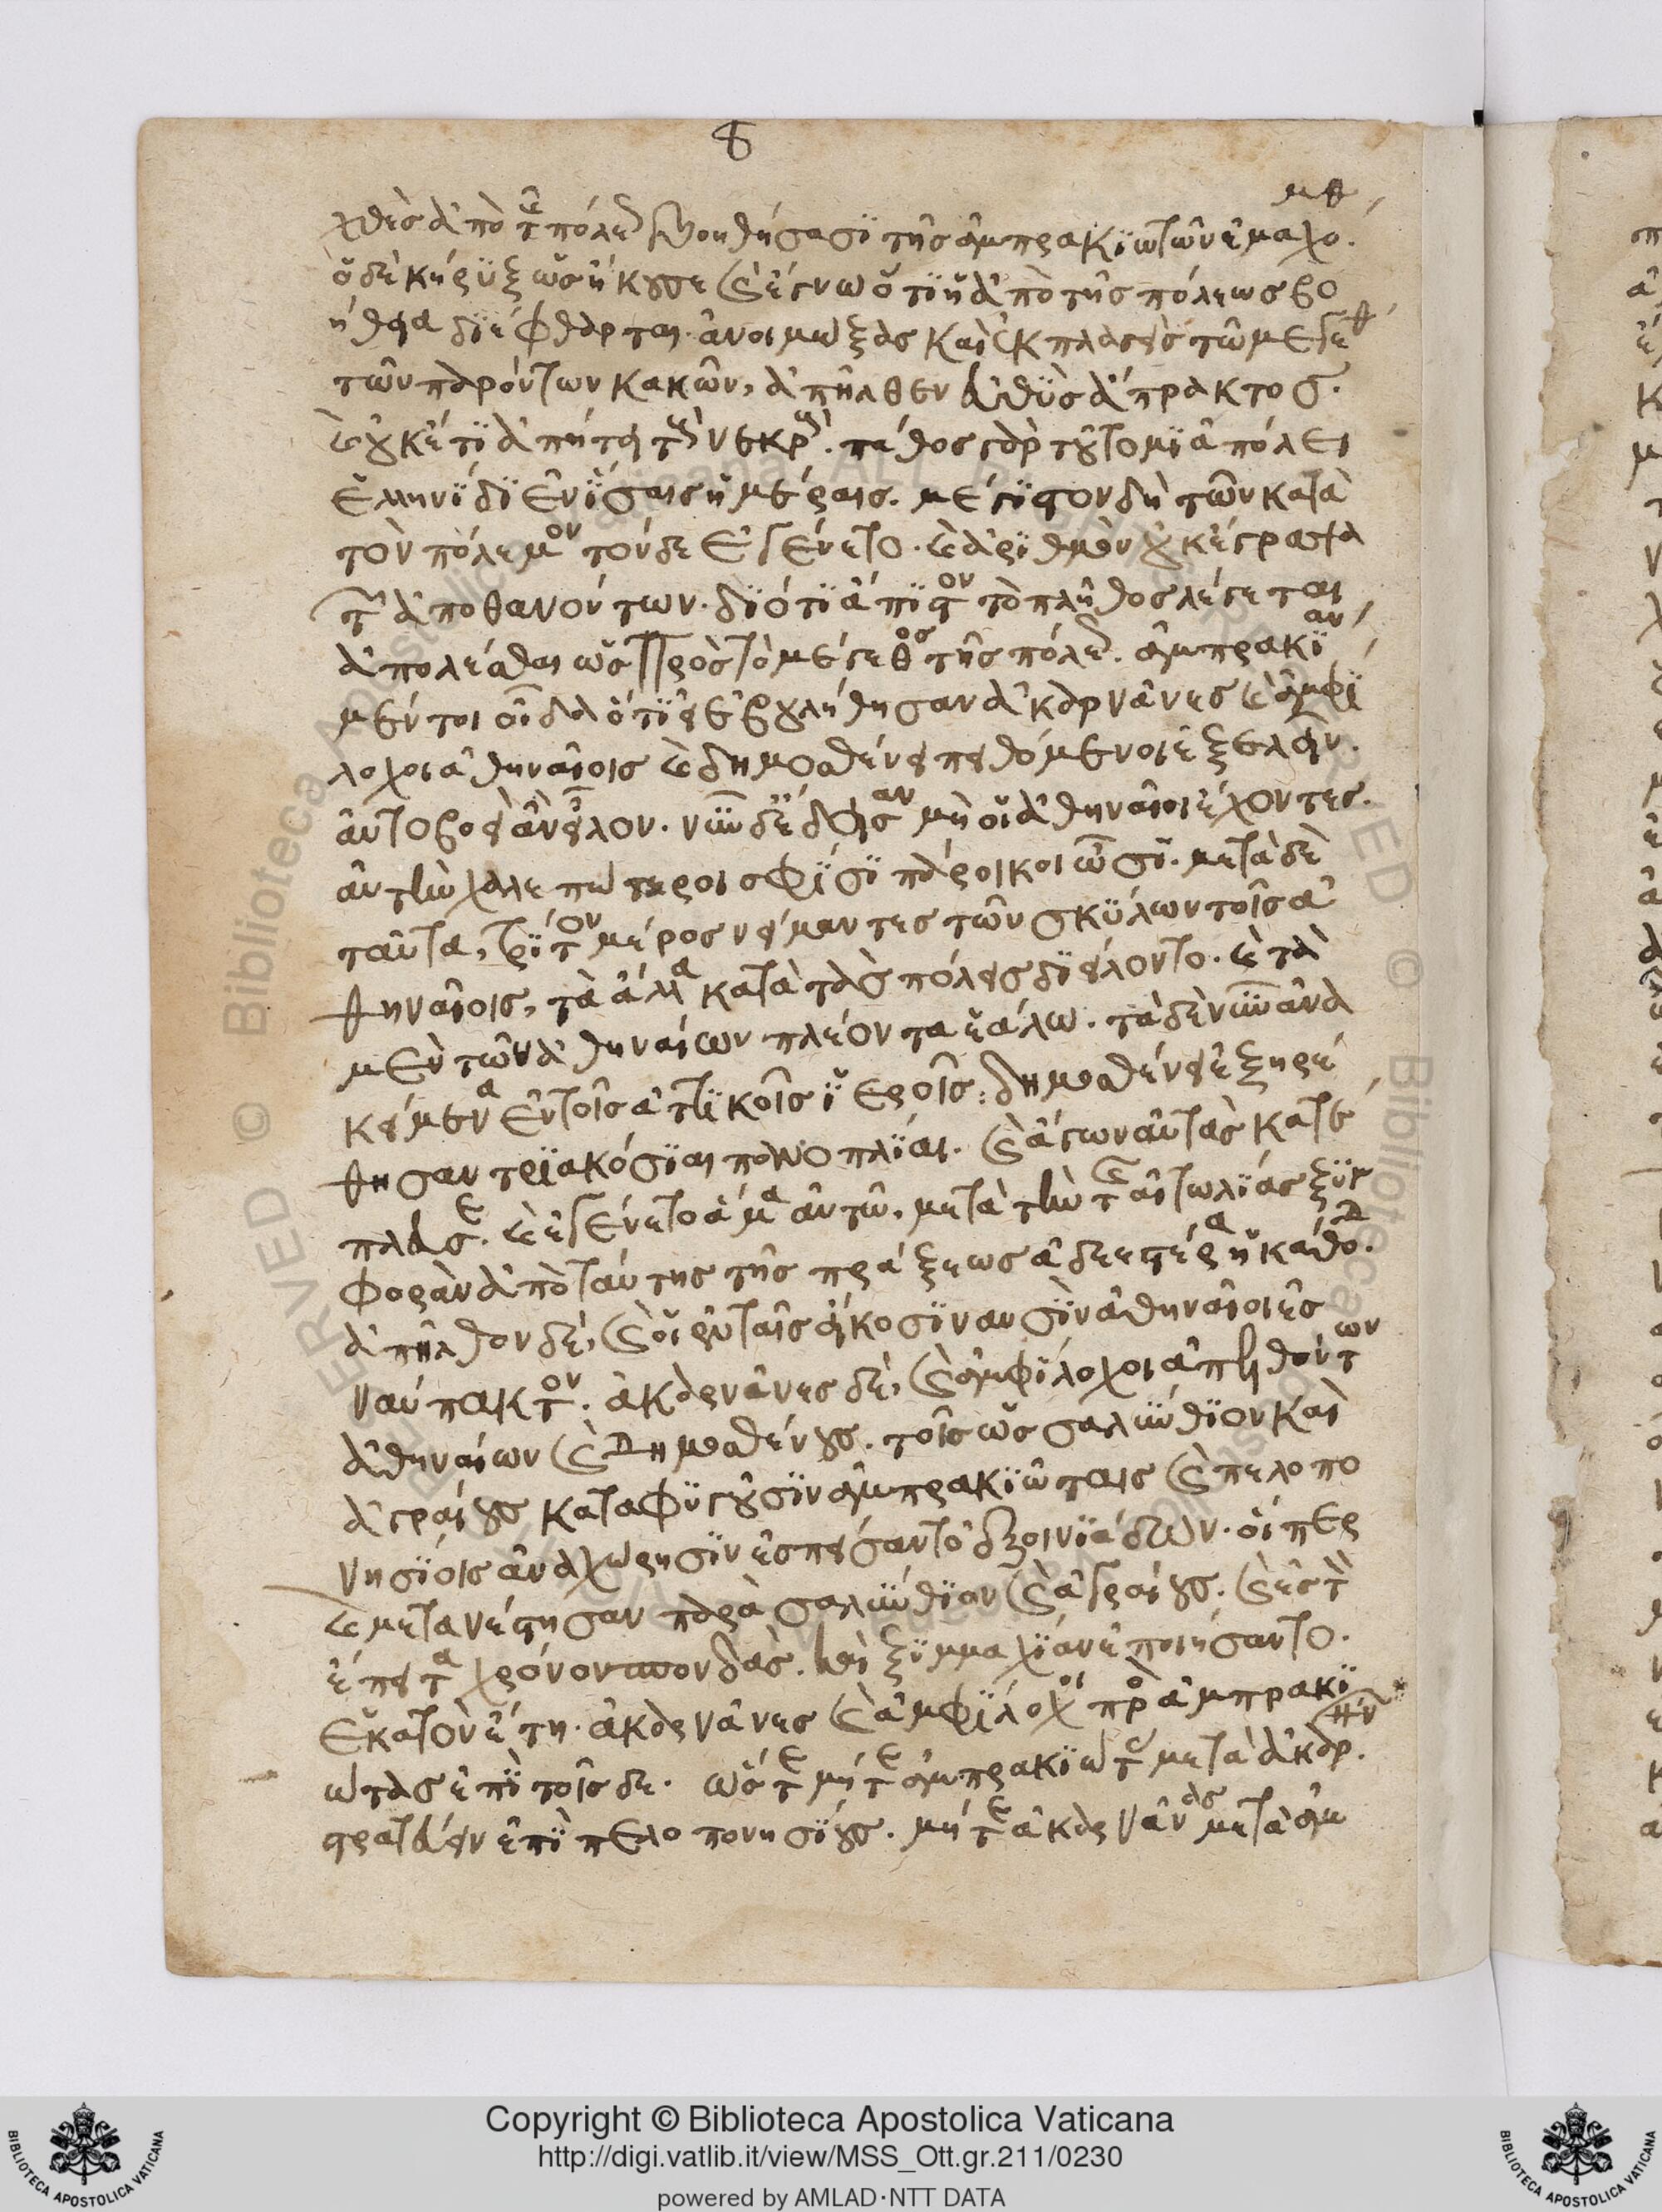 χθὲς ἀπὸ τῆς πόλεως βοηθήσασι τῆς ἀμπρακιωτῶν ἐμαχό
μεθα
ὁ δὲ κῆρυξ ὡς ἤκουσε καὶ ἔγνω ὅτι ἡ ἀπὸ τῆς πόλεως βο
ήθεια διέφθαρται. ἀνοιμώξας καὶ ἐκπλαγεὶς τῷ μεγέθει
τῶν παρόντων κακῶν, ἀπῆλθεν εὐθὺς ἄπρακτος.
καὶ οὐκέτι ἀπῄτει τοὺς νεκρούς. πάθος γὰρ τοῦτο μιᾷ πόλει
ἑλληνίδι ἐν ἴσαις ἡμέραις. μέγιστον δὴ τῶν κατὰ
τὸν πόλεμον τόνδε ἐγένετο. καὶ ἀριθμὸν οὐκ ἔγραψα
τῶν ἀποθανόντων. διότι ἄπιστον τὸ πλῆθος λέγεται
ἀπολέσθαι ὡς πρὸς τὸ μέγεθος τῆς πόλεως. ἀμπρακίαν
μέντοι οἶδα ὅτι εἰ ἐβουλήθησαν ἀκαρνᾶνες καὶ ἀμφί
λοχοι ἀθηναίοις καὶ δημοσθένει πειθόμενοι ἐξελεῖν.
αὐτοβοεὶ ἂν εἷλον. νῦν δὲ ἔδεισαν μὴ οἱ ἀθηναῖοι ἔχοντες.
αὐτὴν χαλεπώτεροι σφίσι πάροικοι ὦσι. μετὰ δὲ
ταῦτα, τρίτον μέρος νείμαντες τῶν σκύλων τοῖς ἀ
θηναίοις, τὰ ἄλλα κατὰ τὰς πόλεις διείλοντο. καὶ τὰ
μὲν τῶν ἀθηναίων πλέοντα ἑάλω. τὰ δὲ νῦν ἀνα
κείμενα ἐν τοῖς ἀττικοῖς ἱεροῖς: δημοσθένει ἐξῃρέ
θησαν τριακόσιαι πανοπλίαι. καὶ ἄγων αὐτὰς κατέ
πλευσε. καὶ ἐγένετο ἅμα αὐτῷ, μετὰ τὴν τῆς αἰτωλίας ξυμ
φορὰν ἀπὸ ταύτης τῆς πράξεως ἀδεεστέρα ἡ κάθοδος.
ἀπῆλθον δὲ, καὶ οἱ ἐν ταῖς εἴκοσι ναυσὶν ἀθηναῖοι ἐς
ναύπακτον. ἀκαρνᾶνες δὲ, καὶ ἀμφίλοχοι ἀπελθόντων
ἀθηναίων καὶ δημοσθένους. τοῖς ὡς σαλύνθιον καὶ
ἀγραίους καταφυγοῦσιν ἀμπρακιώταις καὶ πελοπο
νησίοις ἀναχώρησιν ἐσπείσαντο ἐξ οἰνιαδῶν. οἵπερ
καὶ μετανέστησαν παρὰ σαλύνθιον καὶ ἀγραίους. καὶ ἐς τὸν
ἔπειτα χρόνον σπονδὰς. καὶ ξυμμαχίαν ἐποιήσαντο.
ἑκατὸν ἔτη. ἀκαρνᾶνες καὶ ἀμφίλοχοι πρὸς ἀμπρακι
ώτας ἐπὶ τοῖσδε. ὥστε μήτε ἀμπρακιώτας μετὰ ἀκαρνάνων
στρατεύειν ἐπὶ πελοπονησίους. μήτε ἀκαρνᾶνας μετὰ ἀμ
Copyright © Biblioteca Apostolica Vaticana
http://digi.vatlib.it/view/MSS_Ott.gr.211/0230
powered by AMLAD·NTT DATA